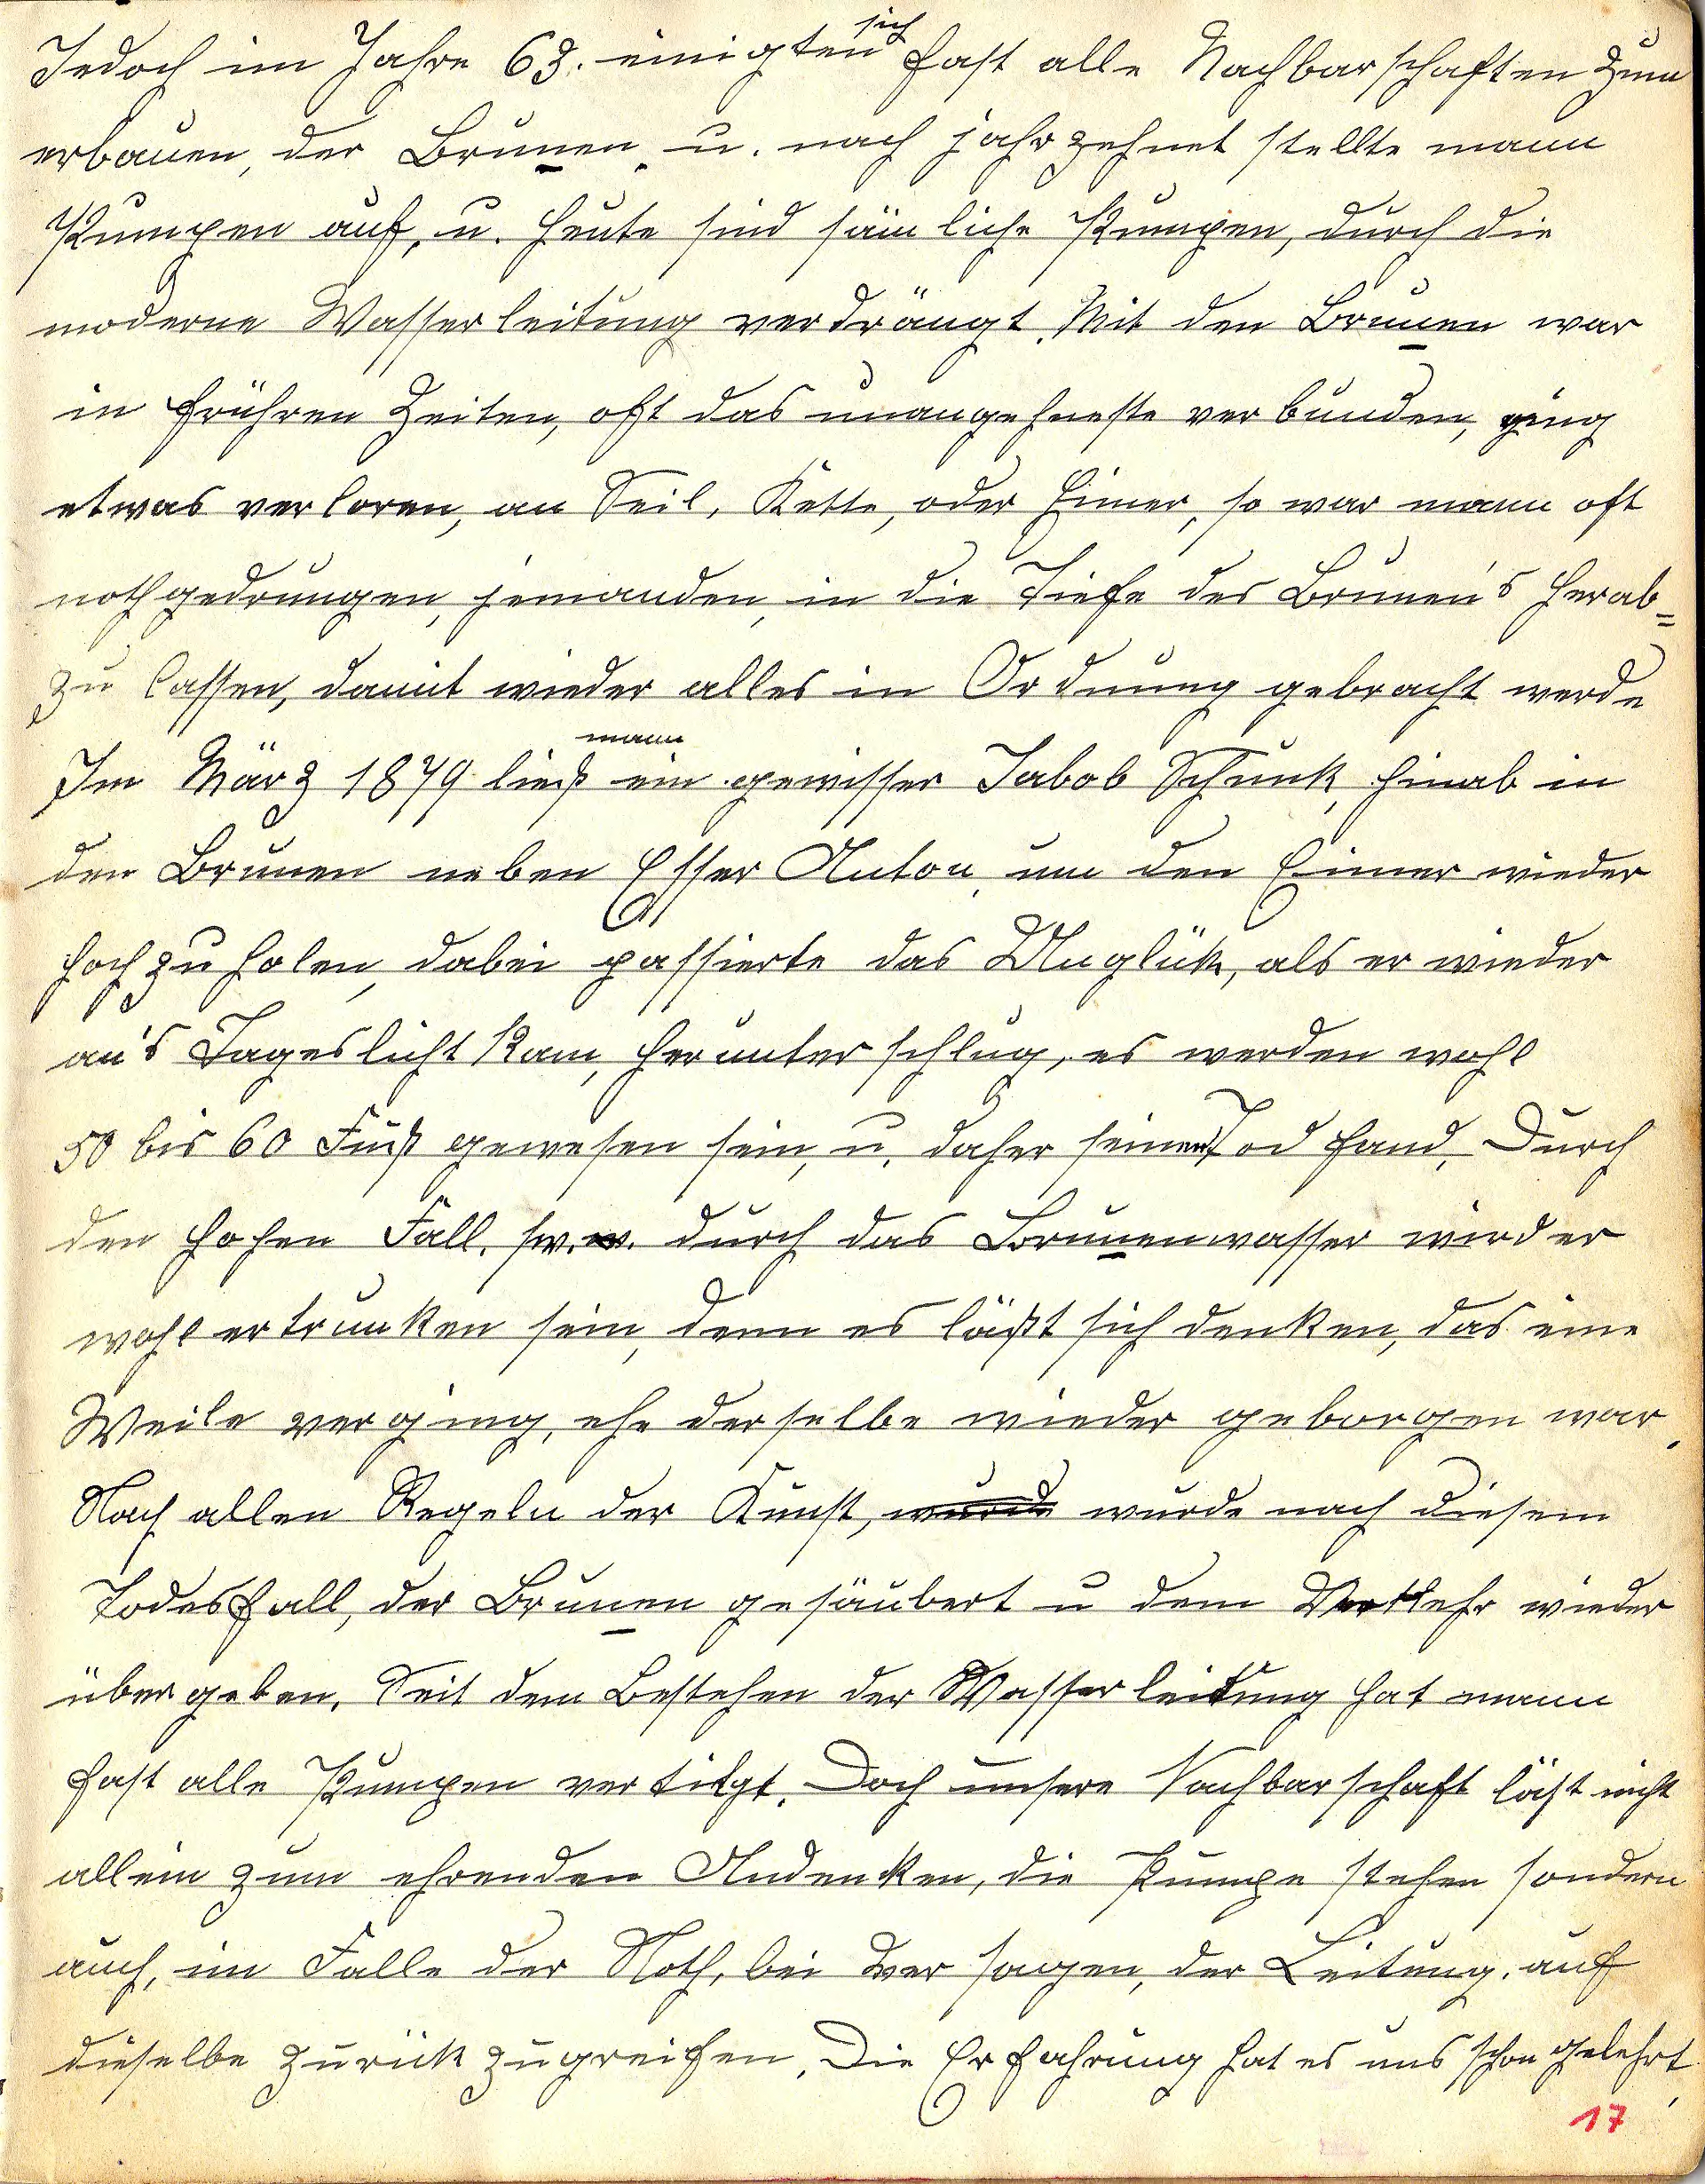 Jedoch im Jahre 63. einigten sich fast alle Nachbarschaften zum
erbauen, der Brunen, u. nach jahrzehnet stellte mann
Pumpen auf, u. heute sind sämliche Pumpen, durch die
moderne Wasserleitung verdrängt. Mit den Brunen war
in frühren Zeiten, oft das unangehneste verbunden, ging
etwas verloren, an Seil, Kette, oder Eimer, so war mann oft
nothgedrungen, jemanden, in die Tiefe des Brunen's herab=
zu lassen, damit wieder alles in Ordnung gebracht werde
Im März 1879 ließ mann ein gewisser Jabob Schunk, hinab in
den Brunen neben Esser Anton, um den Eimer wieder
hoch zu holen, dabei passierte das Unglük, als er wieder
an's Tageslicht kam, herunter schlug, es werden wohl
50 bis 60 Fuß gewesen sein, u. daher seinen Tod fand. Durch
den hohen Fall, sw. w. durch das Brunenwasser wird er
wohl ertrunken sein, denn es läßt sich denken, das eine
Weile verging, ehe derselbe wieder geborgen war.
Nach allen Regeln der Kunst, wurde wurde nach diesem
Todesfall, der Brunen gesäubert u dem Verkehr wieder
übergeben. Seit dem Bestehen der Wasserleitung hat mann
fast alle Pumpen vertilgt. Doch unsere Nachbarschaft läst nicht
allein zum ehrenden Andenken, die Pumpe stehen sondern
auch, im Falle der Noth, bei versagen, der Leitung, auf
dieselbe zurük zugreifen. Die Erfahrung hat es uns schon gelehrt,
17